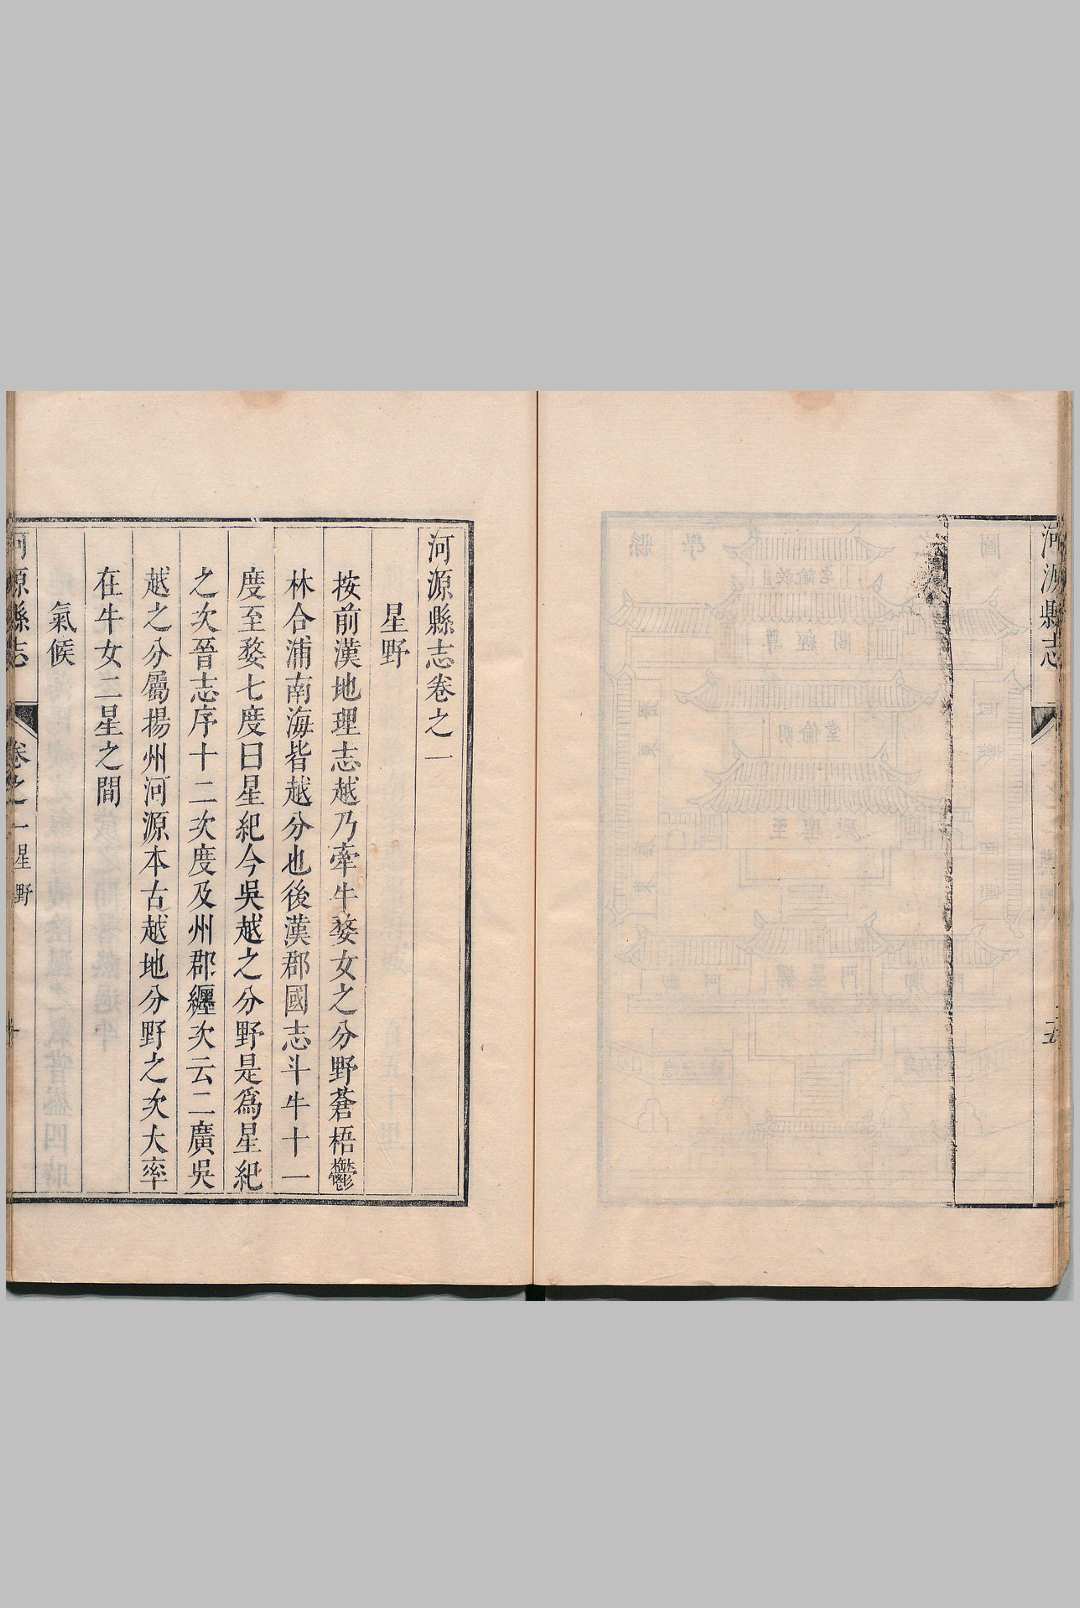 河源縣志
河源縣志卷之一
星野
按前漢地理志越乃牽牛婺女之分野蒼梧鬱
林合浦南海皆越分也後漢郡國志斗牛十一
度至婺七度曰星紀今吳越之分野是爲星紀
之次晉志序十二次度及州郡纏次云二廣吳
越之分屬揚州河源本古越地分野之次大率
在牛女二星之間
氣候
河源縣志 卷之一 星野